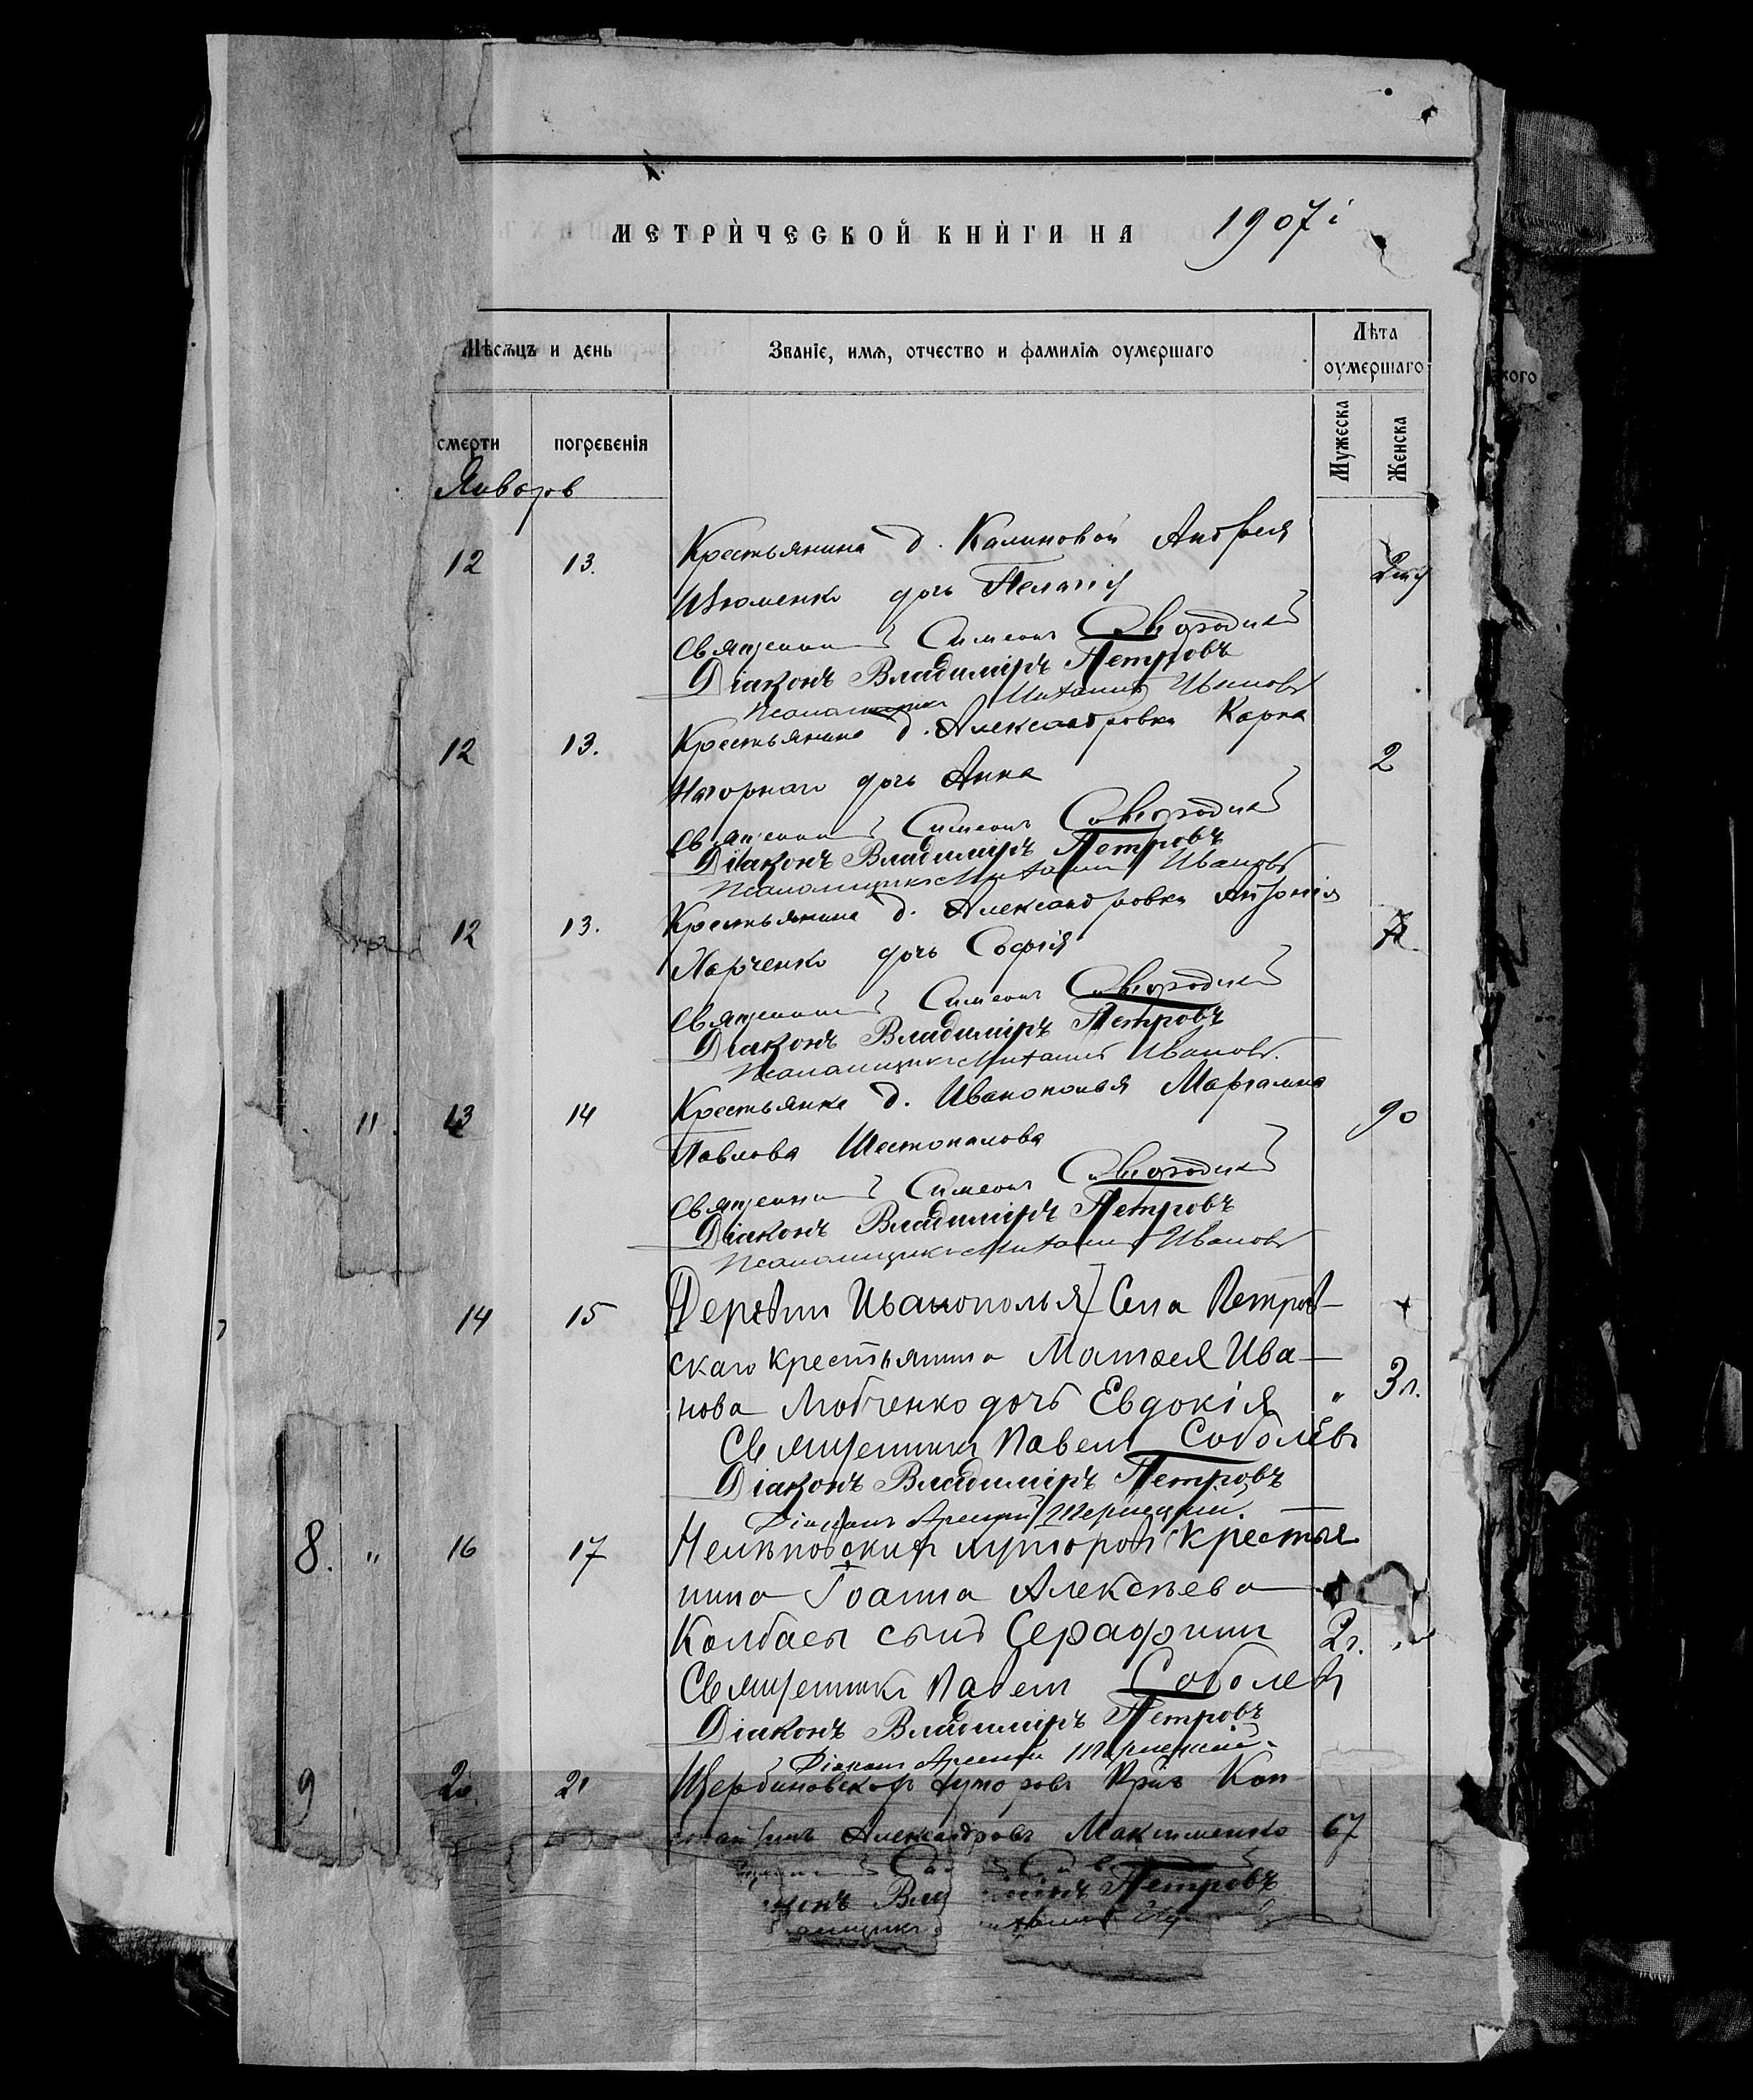 МЕТРИЧЕСКОЙ КНИГИ НА 1907
Мѣсяцъ и день
Званіе, имя, отчество и фамилія оумершаго
Лѣта оумершаго
смерти
погребенія
Мужеска
Женска
Январь
12 13. Крестьянина д. Калиновой Андрея
Изюменко дочь Пелагія
Священникъ Симеонъ
Діаконъ Владиміръ Петровъ
Псаломщикъ Михаилъ Ивановъ
12 13. Крестьянина д. Александровки Карпа 2
Нагорнаго дочь Анна
Священникъ Симеонъ
Діаконъ Владиміръ Петровъ
Псаломщикъ Михаилъ Ивановъ
12 13. Крестьянина д. Александровки Антонія
Харченко дочь Софія
Священникъ Симеонъ
Діаконъ Владиміръ Петровъ
Псаломщикъ Михаилъ Ивановъ.
11. 13 14 Крестьянка д. Иванополья 90
Павлова Шестопалова
Священникъ Симеонъ
Діаконъ Владиміръ Петровъ
Псаломщикъ Михаилъ Ивановъ
14 15 [Деревни Иванополья] Села Петров-
скаго крестьянина Матѳея Ива-
нова Любченко дочь Евдокія " 3 л.
Священникъ Павелъ Соболевъ
Діаконъ Владиміръ Петровъ
Діаконъ Арсеній
8. " 16 17 хуторовъ крестья
нина Іоанна Алексѣева
Колбасы сынъ Серафимъ 2 г. "
Священникъ Павелъ Соболевъ
Діаконъ Владиміръ Петровъ
Діаконъ Арсеній
9 20. 21 Щербиновскихъ хуторовъ Кон
Александровъ Максименко 67
Петровъ